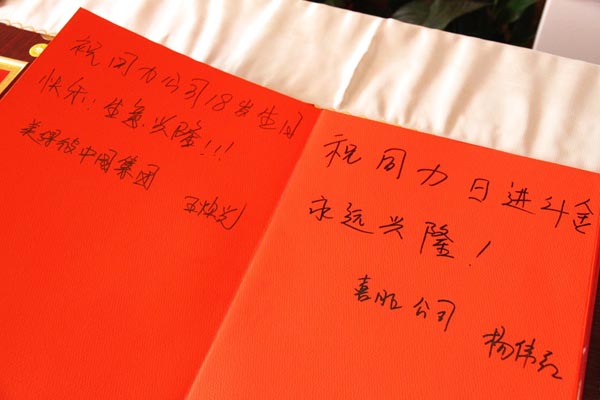 祝同力公司18岁生日
快乐!生意兴隆!!!
中国集团
祝同力日进斗金
永远兴隆!
公司
杨伟